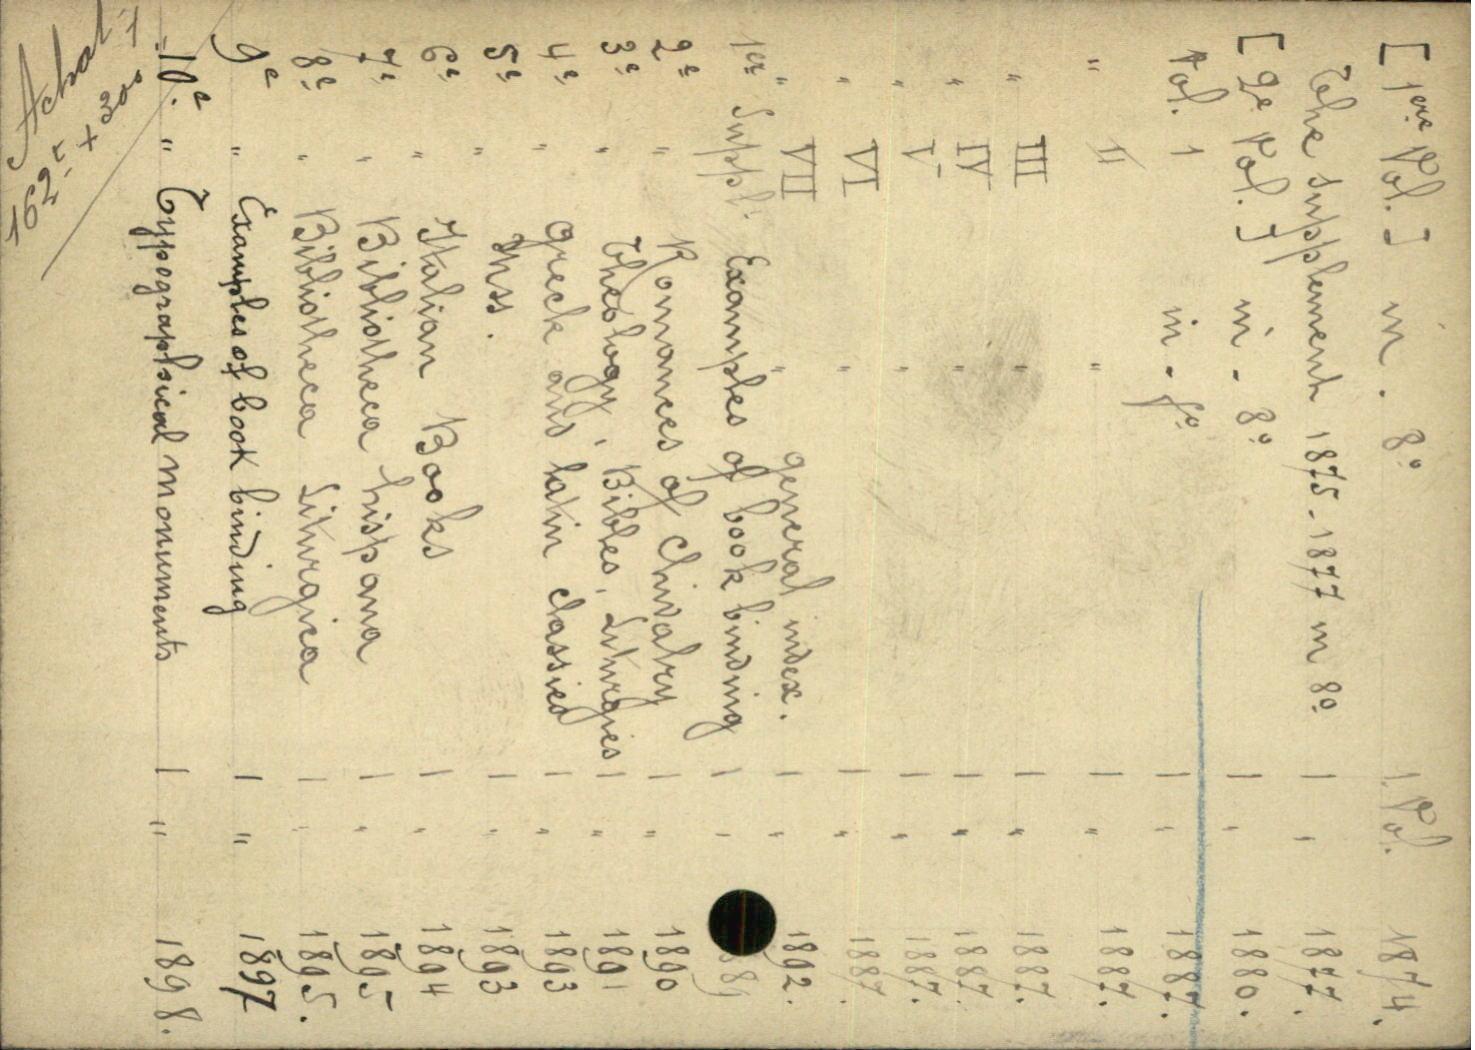 [1ere Vol.] in - 8° 1 Vol. 1874.
The Supplement 1875-1877 in 8° 1 " 1877.
[2e Vol.] in - 8° 1 " 1880.
Vol. 1 in - f° 1 " 1887.
" II " 1 " 1887.
" III " 1 " 1887.
" IV " 1 " 1887.
" V " 1 " 1887.
" VI " 1 " 1887.
" VII " general index. 1 " 1892.
1er Supplt Examples of book binding 1 " 889
2e " Romances of Chivalry 1 " 1890
3e " Theology, Bibles, Liturgies 1 " 1891
4e " greek and latin classics 1 " 1893
5e " Mss. 1 " 1893
6e " Italian Books 1 " 1894
7e " Bibliotheca hispana 1 " 1895
8e " Bibliotheca Liturgica 1 " 1895.
9e " Examples of book binding 1 " 1897
10e. " Typographical monuments 1 " 1898.
Achat